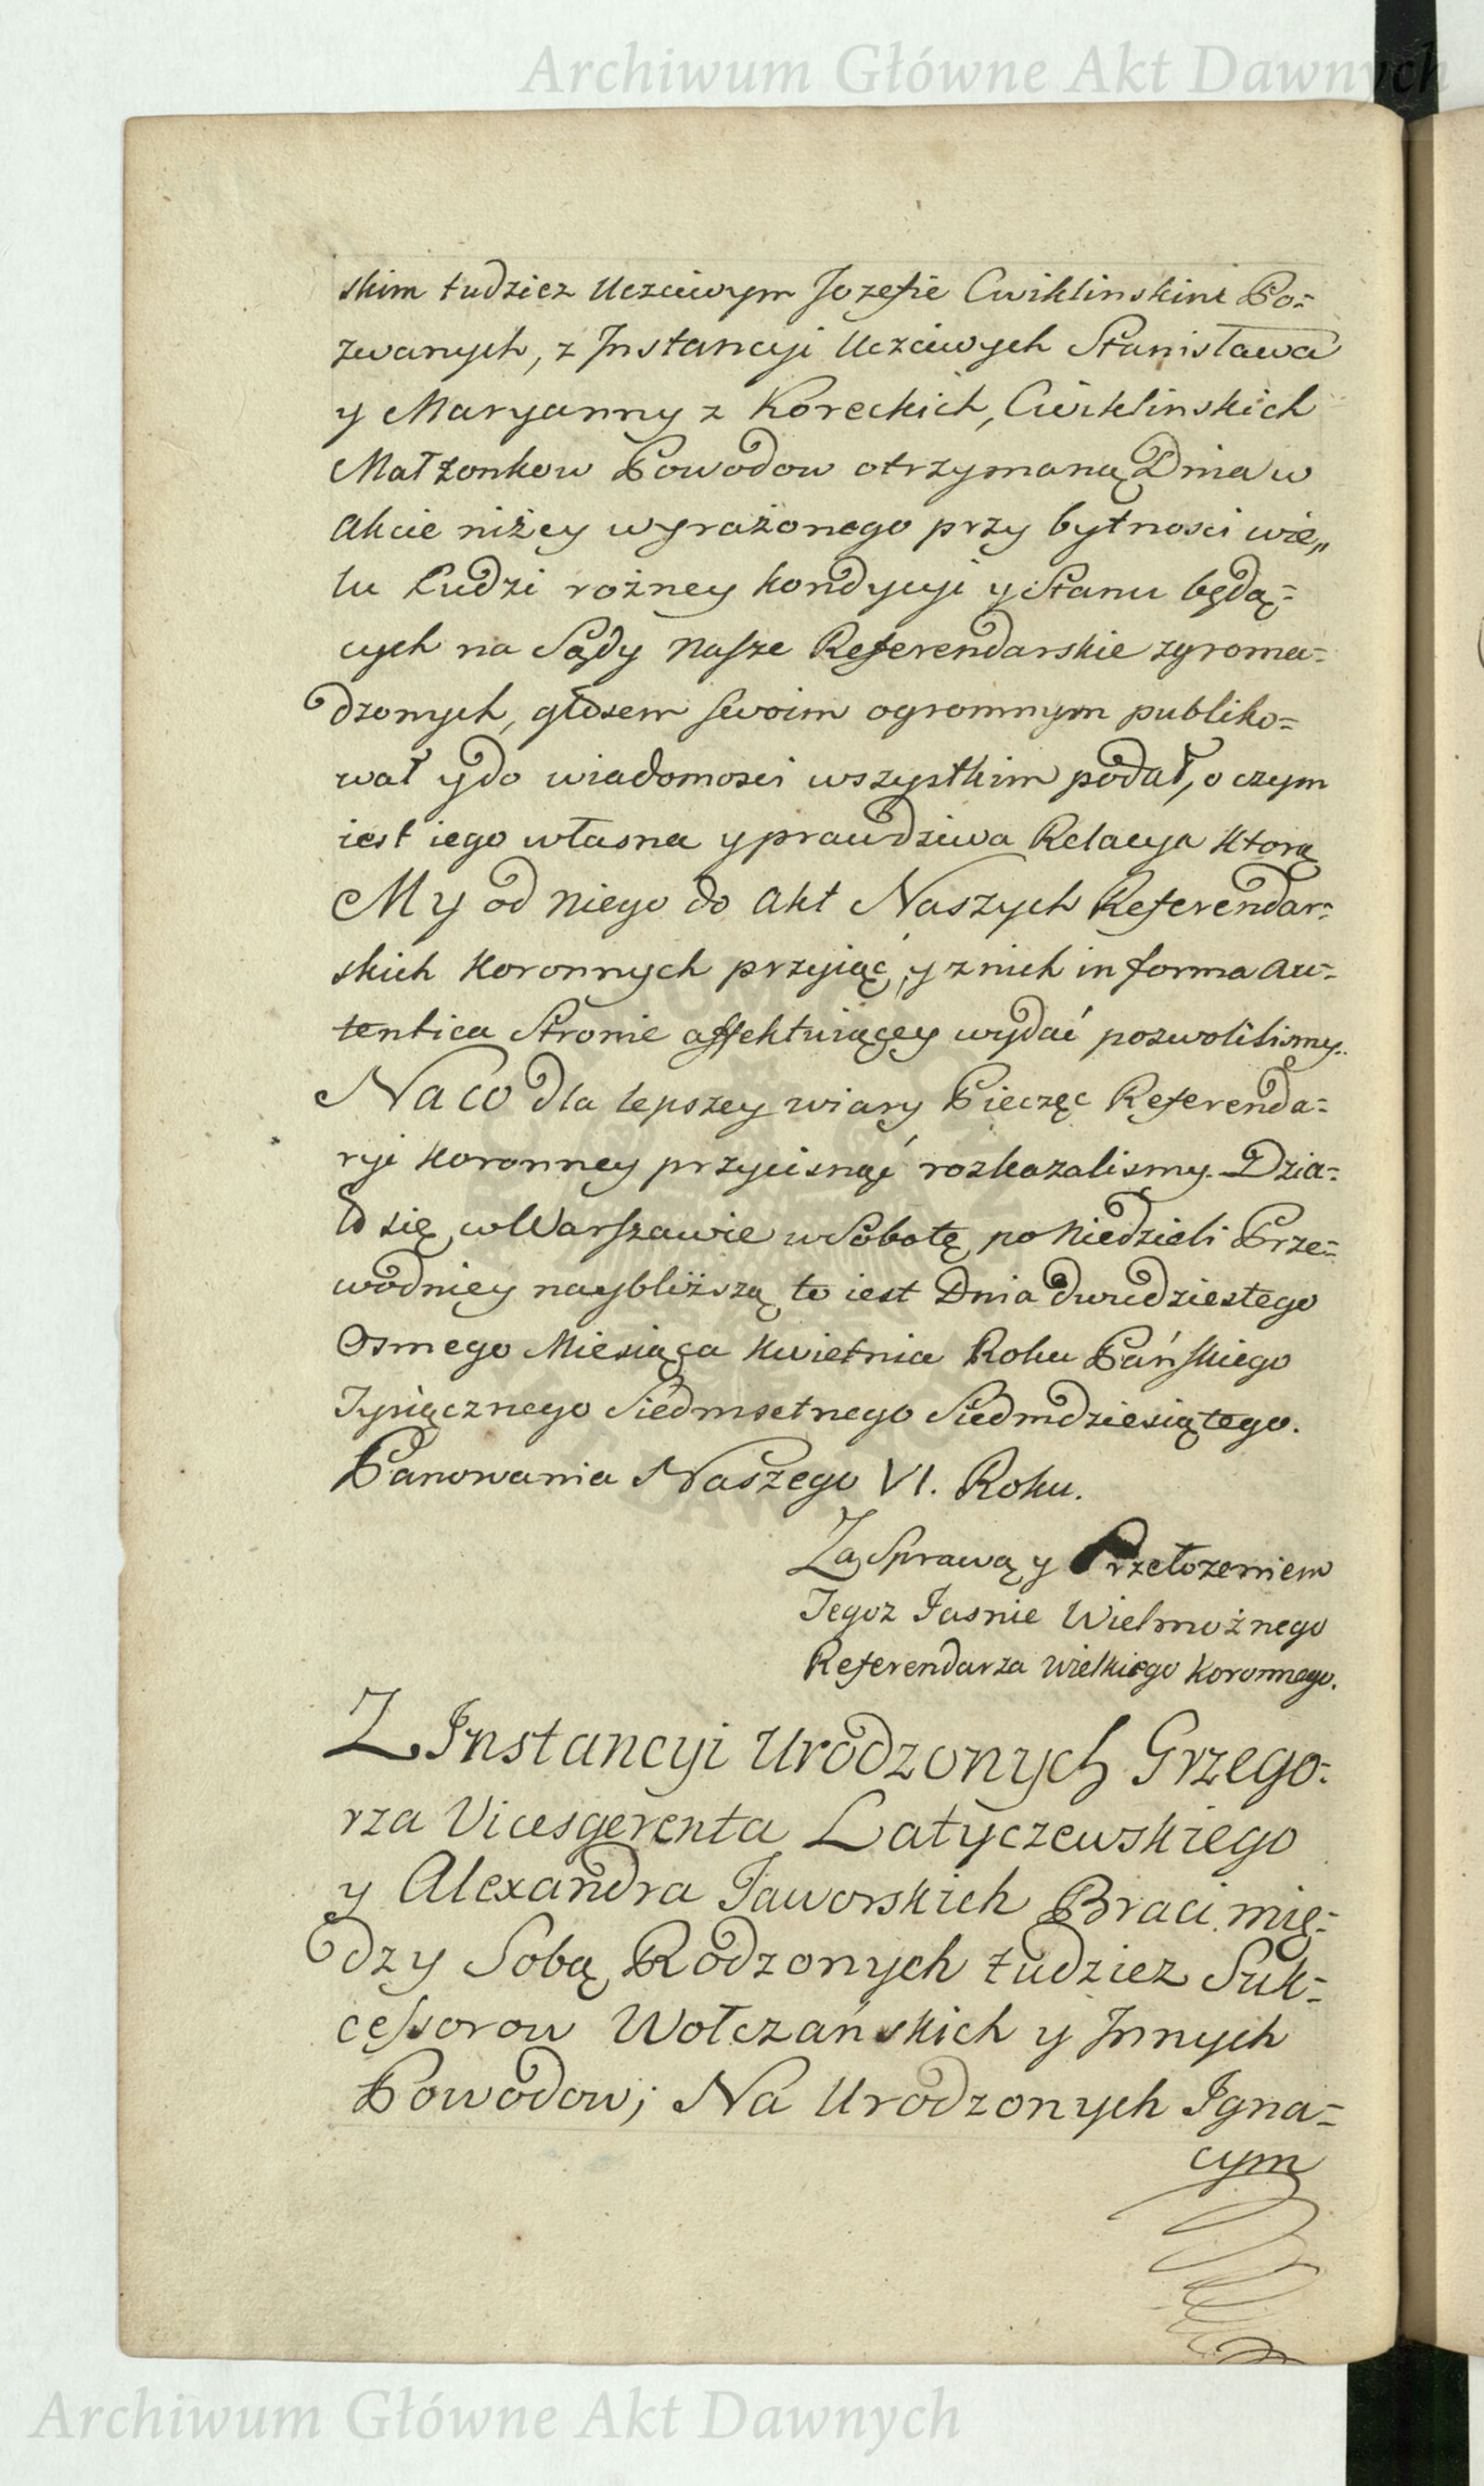 Archiwum Główne Akt Dawnych
skim tudziez Uczciwym Jozefie Cwiklinskim Po=
zwanych, z Jnstancyi Uczciwych Stanisława
y Maryanny z Koreckich, Cwiklinskich
Małżonkow Powodow otrzymaną Dnia w
Akcie niżey wyrażonego przy bytnosci wie„
lu Ludzi rożney Kondycyi y Stanu będą=
cych na Sądy Nasze Referendarskie zgroma=
dzonych, głosem swoim ogromnym publiko=
wał y do wiadomosci wszystkim podał, o czym
iest iego własna y prawdziwa Relacya Ktorą
My od Niego do Akt Naszych Referendar=
skich Koronnych przyiąć, y z nich in forma Au=
tentica Stronie affektuiącey wydać pozwolilismy.
Na co dla lepszey wiary Pieczęc Referenda=
ryi Koronney przycisnąć rozkazalismy. Dzia=
ło się w Warszawie w Sobotę po Niedzieli Prze=
wodniey naybliższą to iest Dnia dwudziestego
Osmego Miesiąca Kwietnia Roku Pańskiego
Tysiącznego Siedmsetnego Siedmdziesiątego.
Panowania Naszego VI. Roku.
Za Sprawą y Przełozeniem
Jegoz Jasnie Wielmożnego
Referendarza Wielkiego Koronnego.
Z Jnstancyi Urodzonych Grzego=
rza Vicesgerenta Latyczewskiego
y Alexandra Jaworskich Braci mię=
dzy Sobą Rodzonych tudziez Suk=
cessorow Wołczańskich y Jnnych
Powodow; Na Urodzonych Jgna=
cym
Archiwum Główne Akt Dawnych